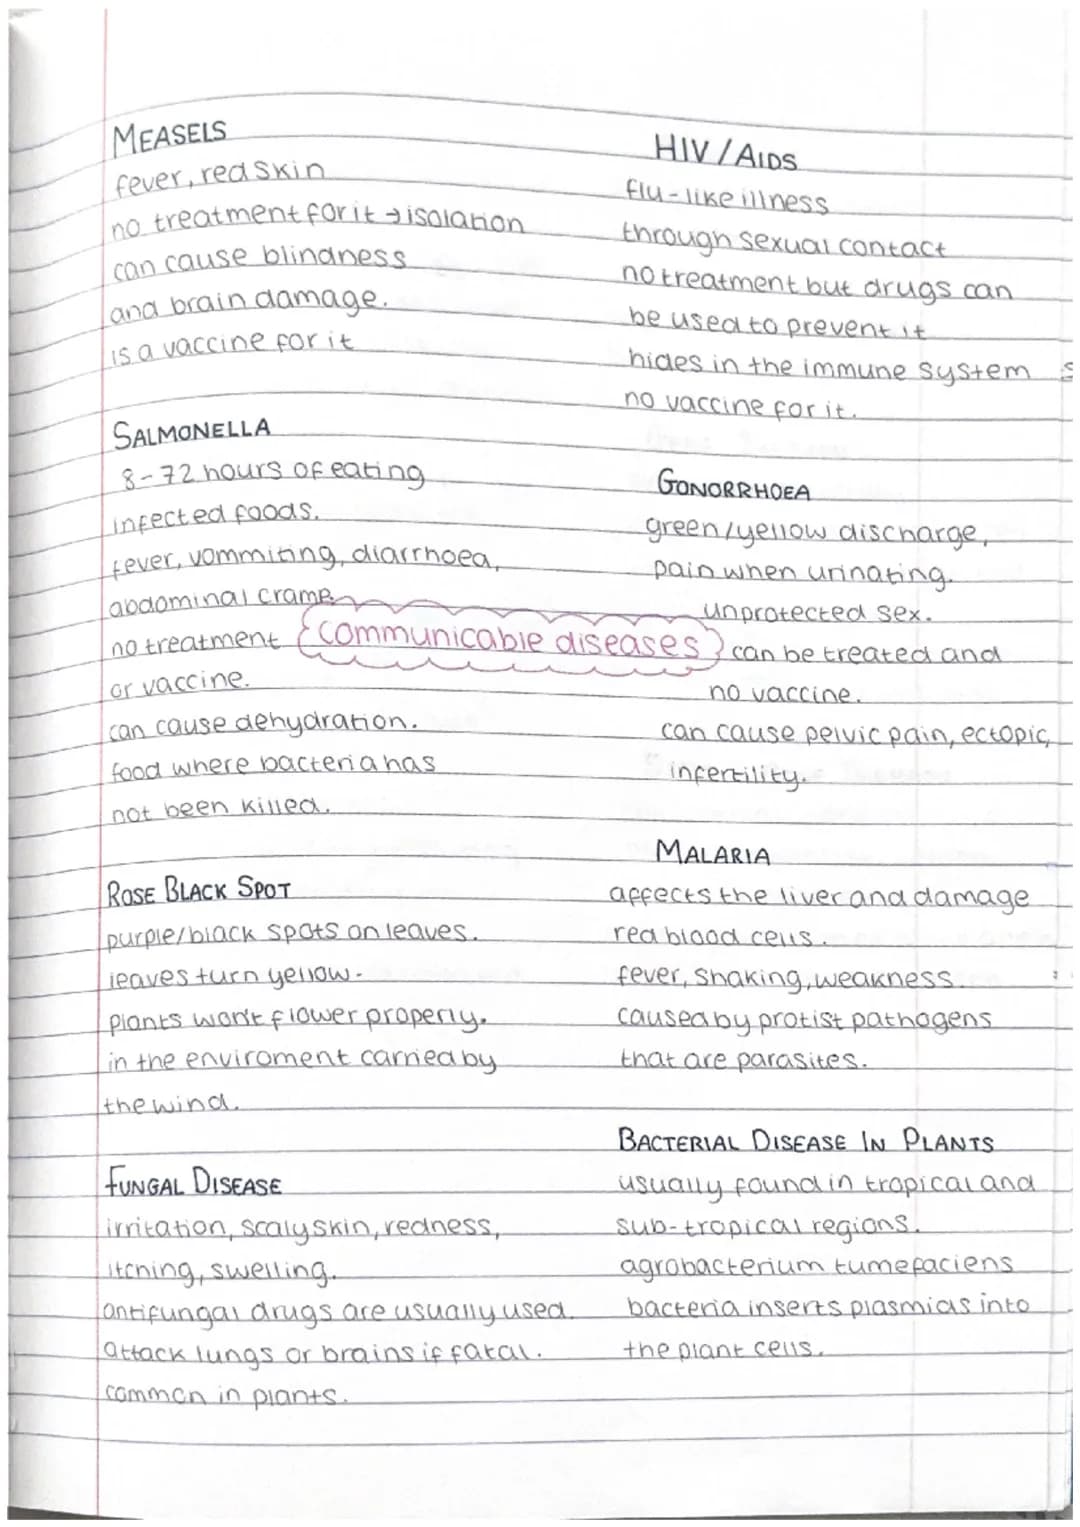 MEASELS
fever, red skin
no treatment for it → isolation
can cause blindness
and brain damage.
is a vaccine for it
SALMONELLA
8-72 hours of eating
infected foods.
fever, vommiting, diarrhoea,
abdominal cramp.
no treatment
or vaccine.
can cause dehydration.
food where bacteria has
not been killed.
communicable diseases
ROSE BLACK SPOT
purple/black spots on leaves.
leaves turn yellow.
plants won't flower properly.
in the enviroment carried by
the wind.
FUNGAL DISEASE
irritation, scaly skin, redness,
itching, swelling.
antifungal drugs are usually used.
attack lungs or brains if fatal.
common in plants.
HIV/AIDS
flu-like illness
through sexual contact
no treatment but drugs can
be used to prevent it
hides in the immune system
no vaccine for it.
GONORRHOEA
green/yellow discharge,
pain when urinating.
unprotected sex.
can be treated and
no vaccine.
can cause pelvic pain, ectopic,
infertility.
MALARIA
affects the liver and damage
red blood cells.
fever, shaking, weakness.
caused by protist pathogens
that are parasites.
BACTERIAL DISEASE IN PLANTS
usually found in tropical and
sub-tropical regions.
agrobacterium tumefaciens
bacteria inserts plasmids into
the plant cells.